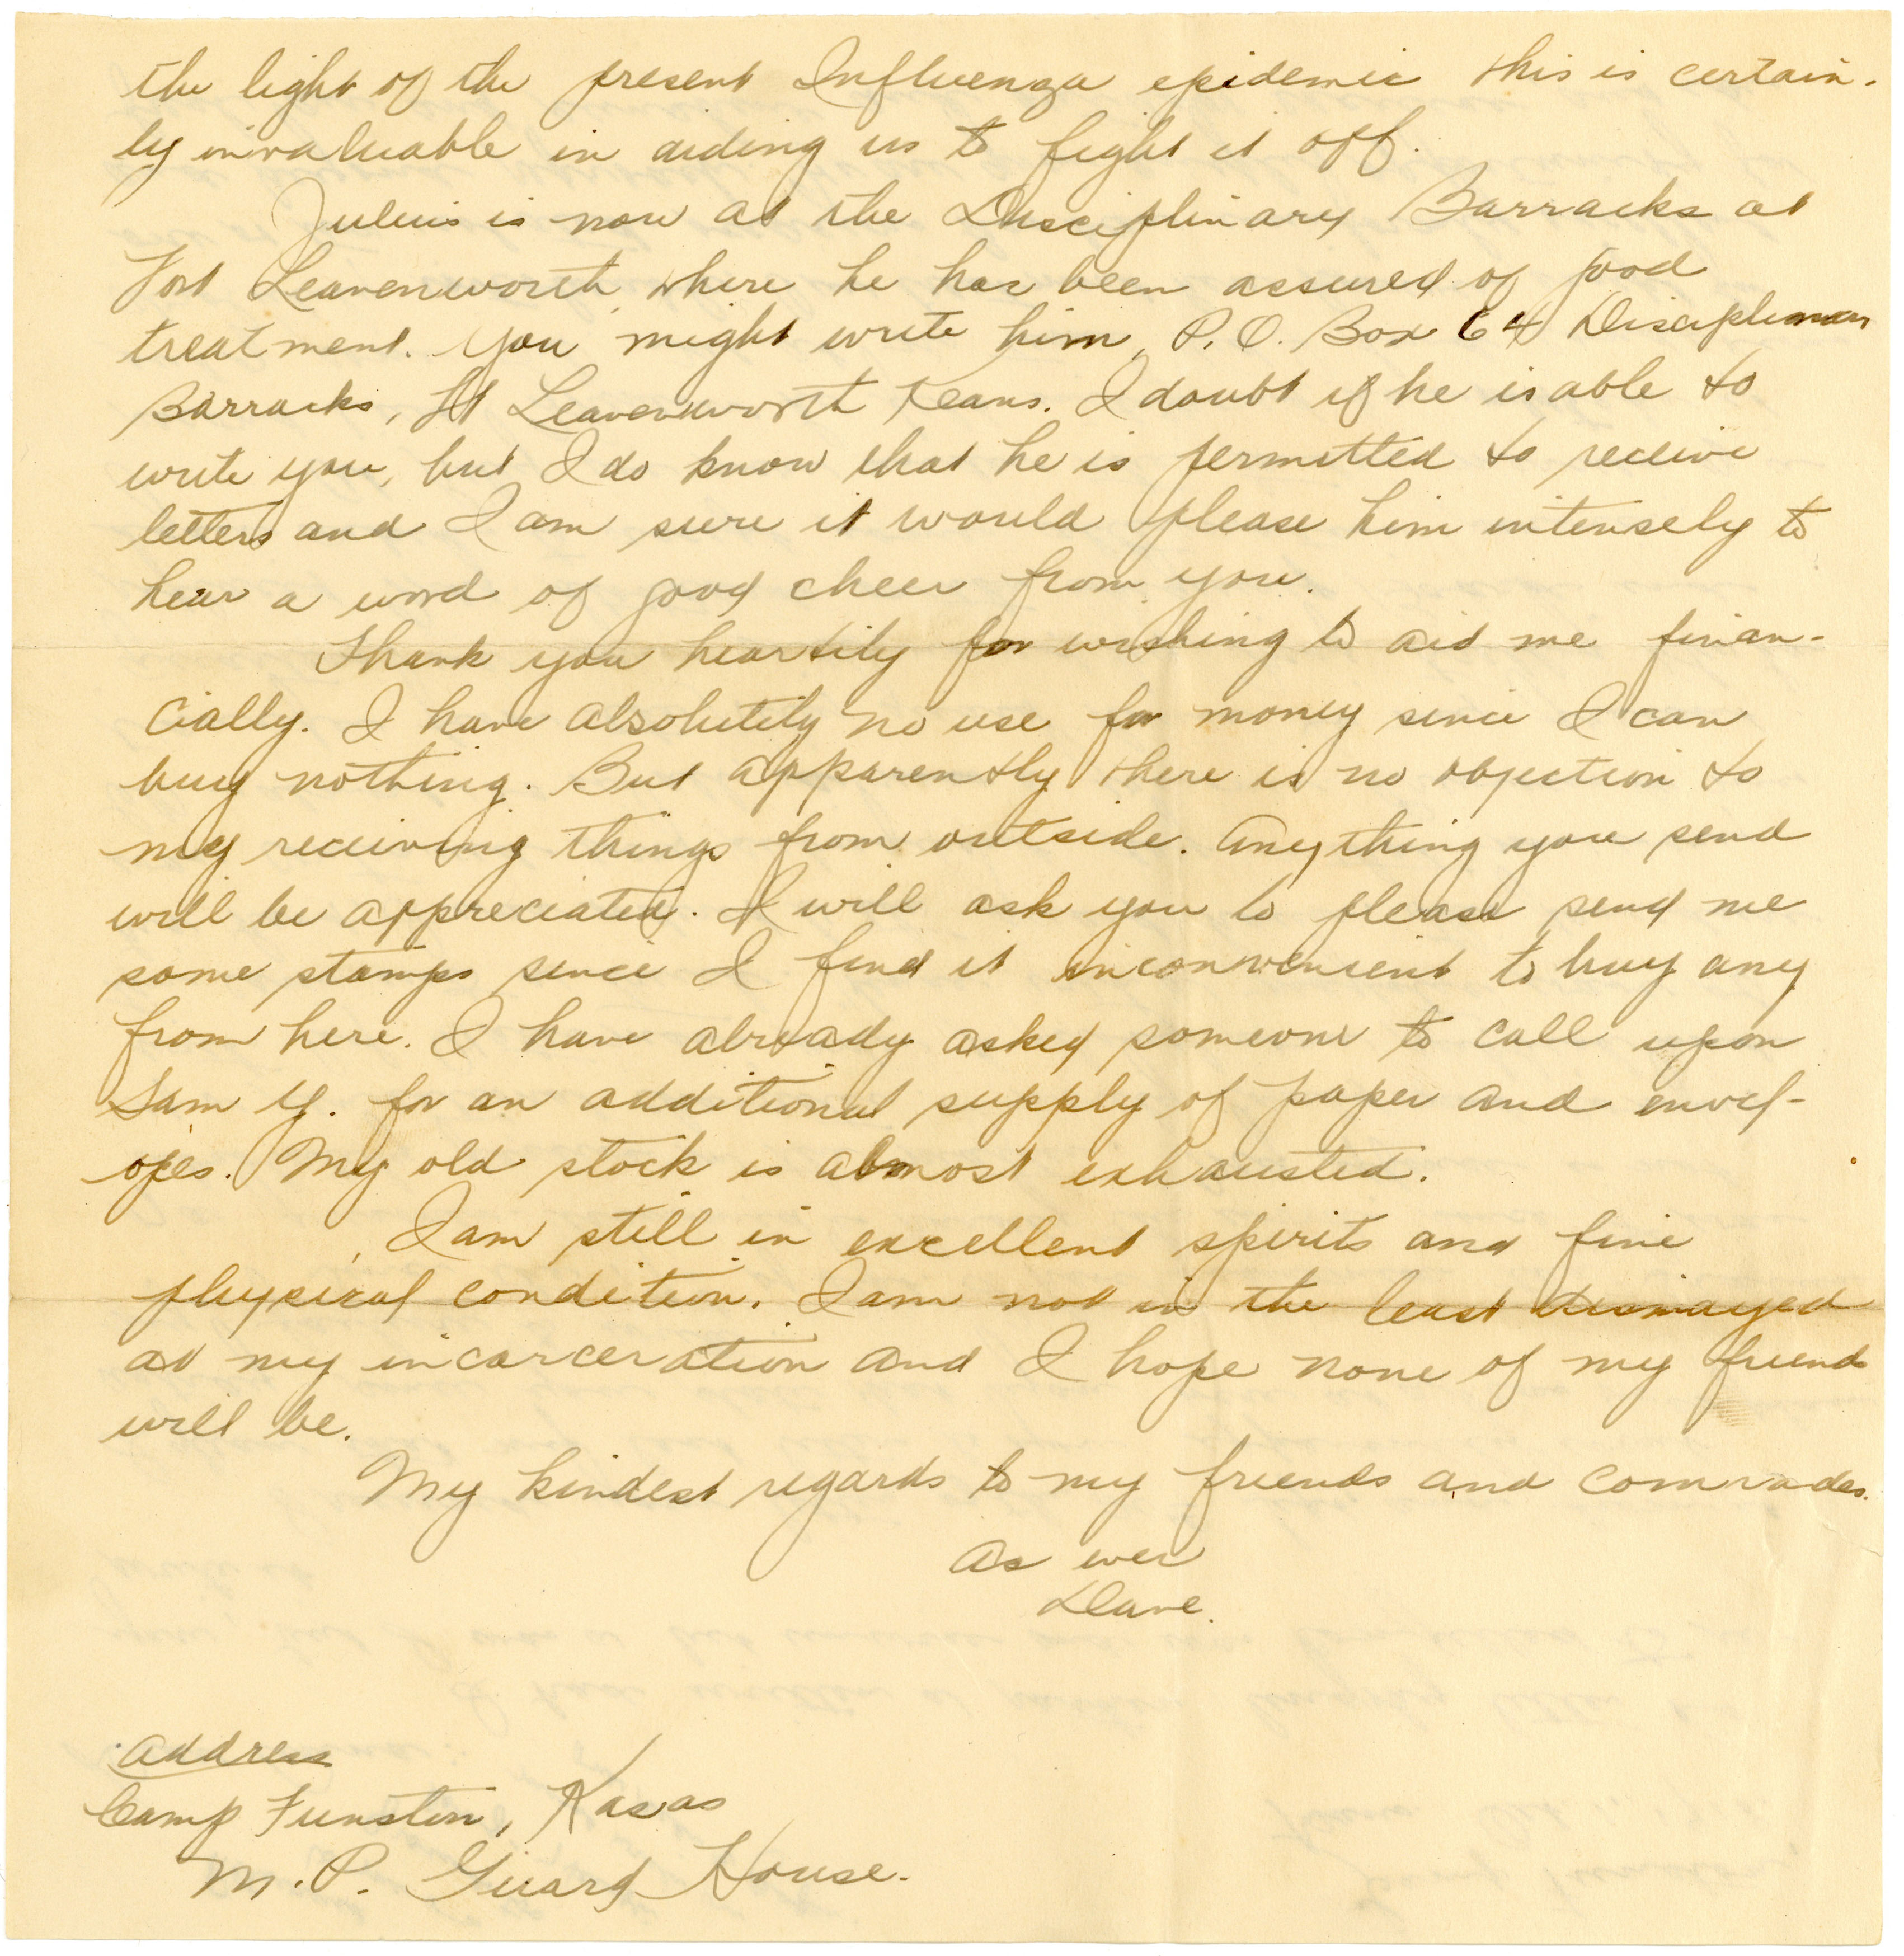 the light of the present Influenza epidemic this is certain-
ly invaluable in aiding us to fight it off.
Julius is now at the Disciplinary Barracks at
Fort Leavenworth, where he has been assured of good
treatment. You might write him, P.O. Box 64 Disciplinary
Barracks, Ft Leavenworth Keans. I doubt if he is able to
write you, but I do know that he is permitted to receive
letters and I am sure it would please him intensely to
hear a word of good cheer from you.
Thank you heartily for wishing to aid me finan-
cially. I have absolutely no use for money since I can
buy nothing. But apparently there is no objection to
my receiving things from outside. Anything you send
will be appreciated. I will ask you to please send me
some stamps since I find it inconvenient to buy any
from here. I have already asked someone to call upon
Sam Y. for an additional supply of paper and envel-
opes. My old stock is almost exhausted.
I am still in excellent spirits and fine
physical condition. I am not in the least dismayed
at my incarceration and I hope none of my friends
will be.
My kindest regards to my friends and comrades.
As ever
Dave.
Address
Camp Funston, Kasas
M.P. Guard House.